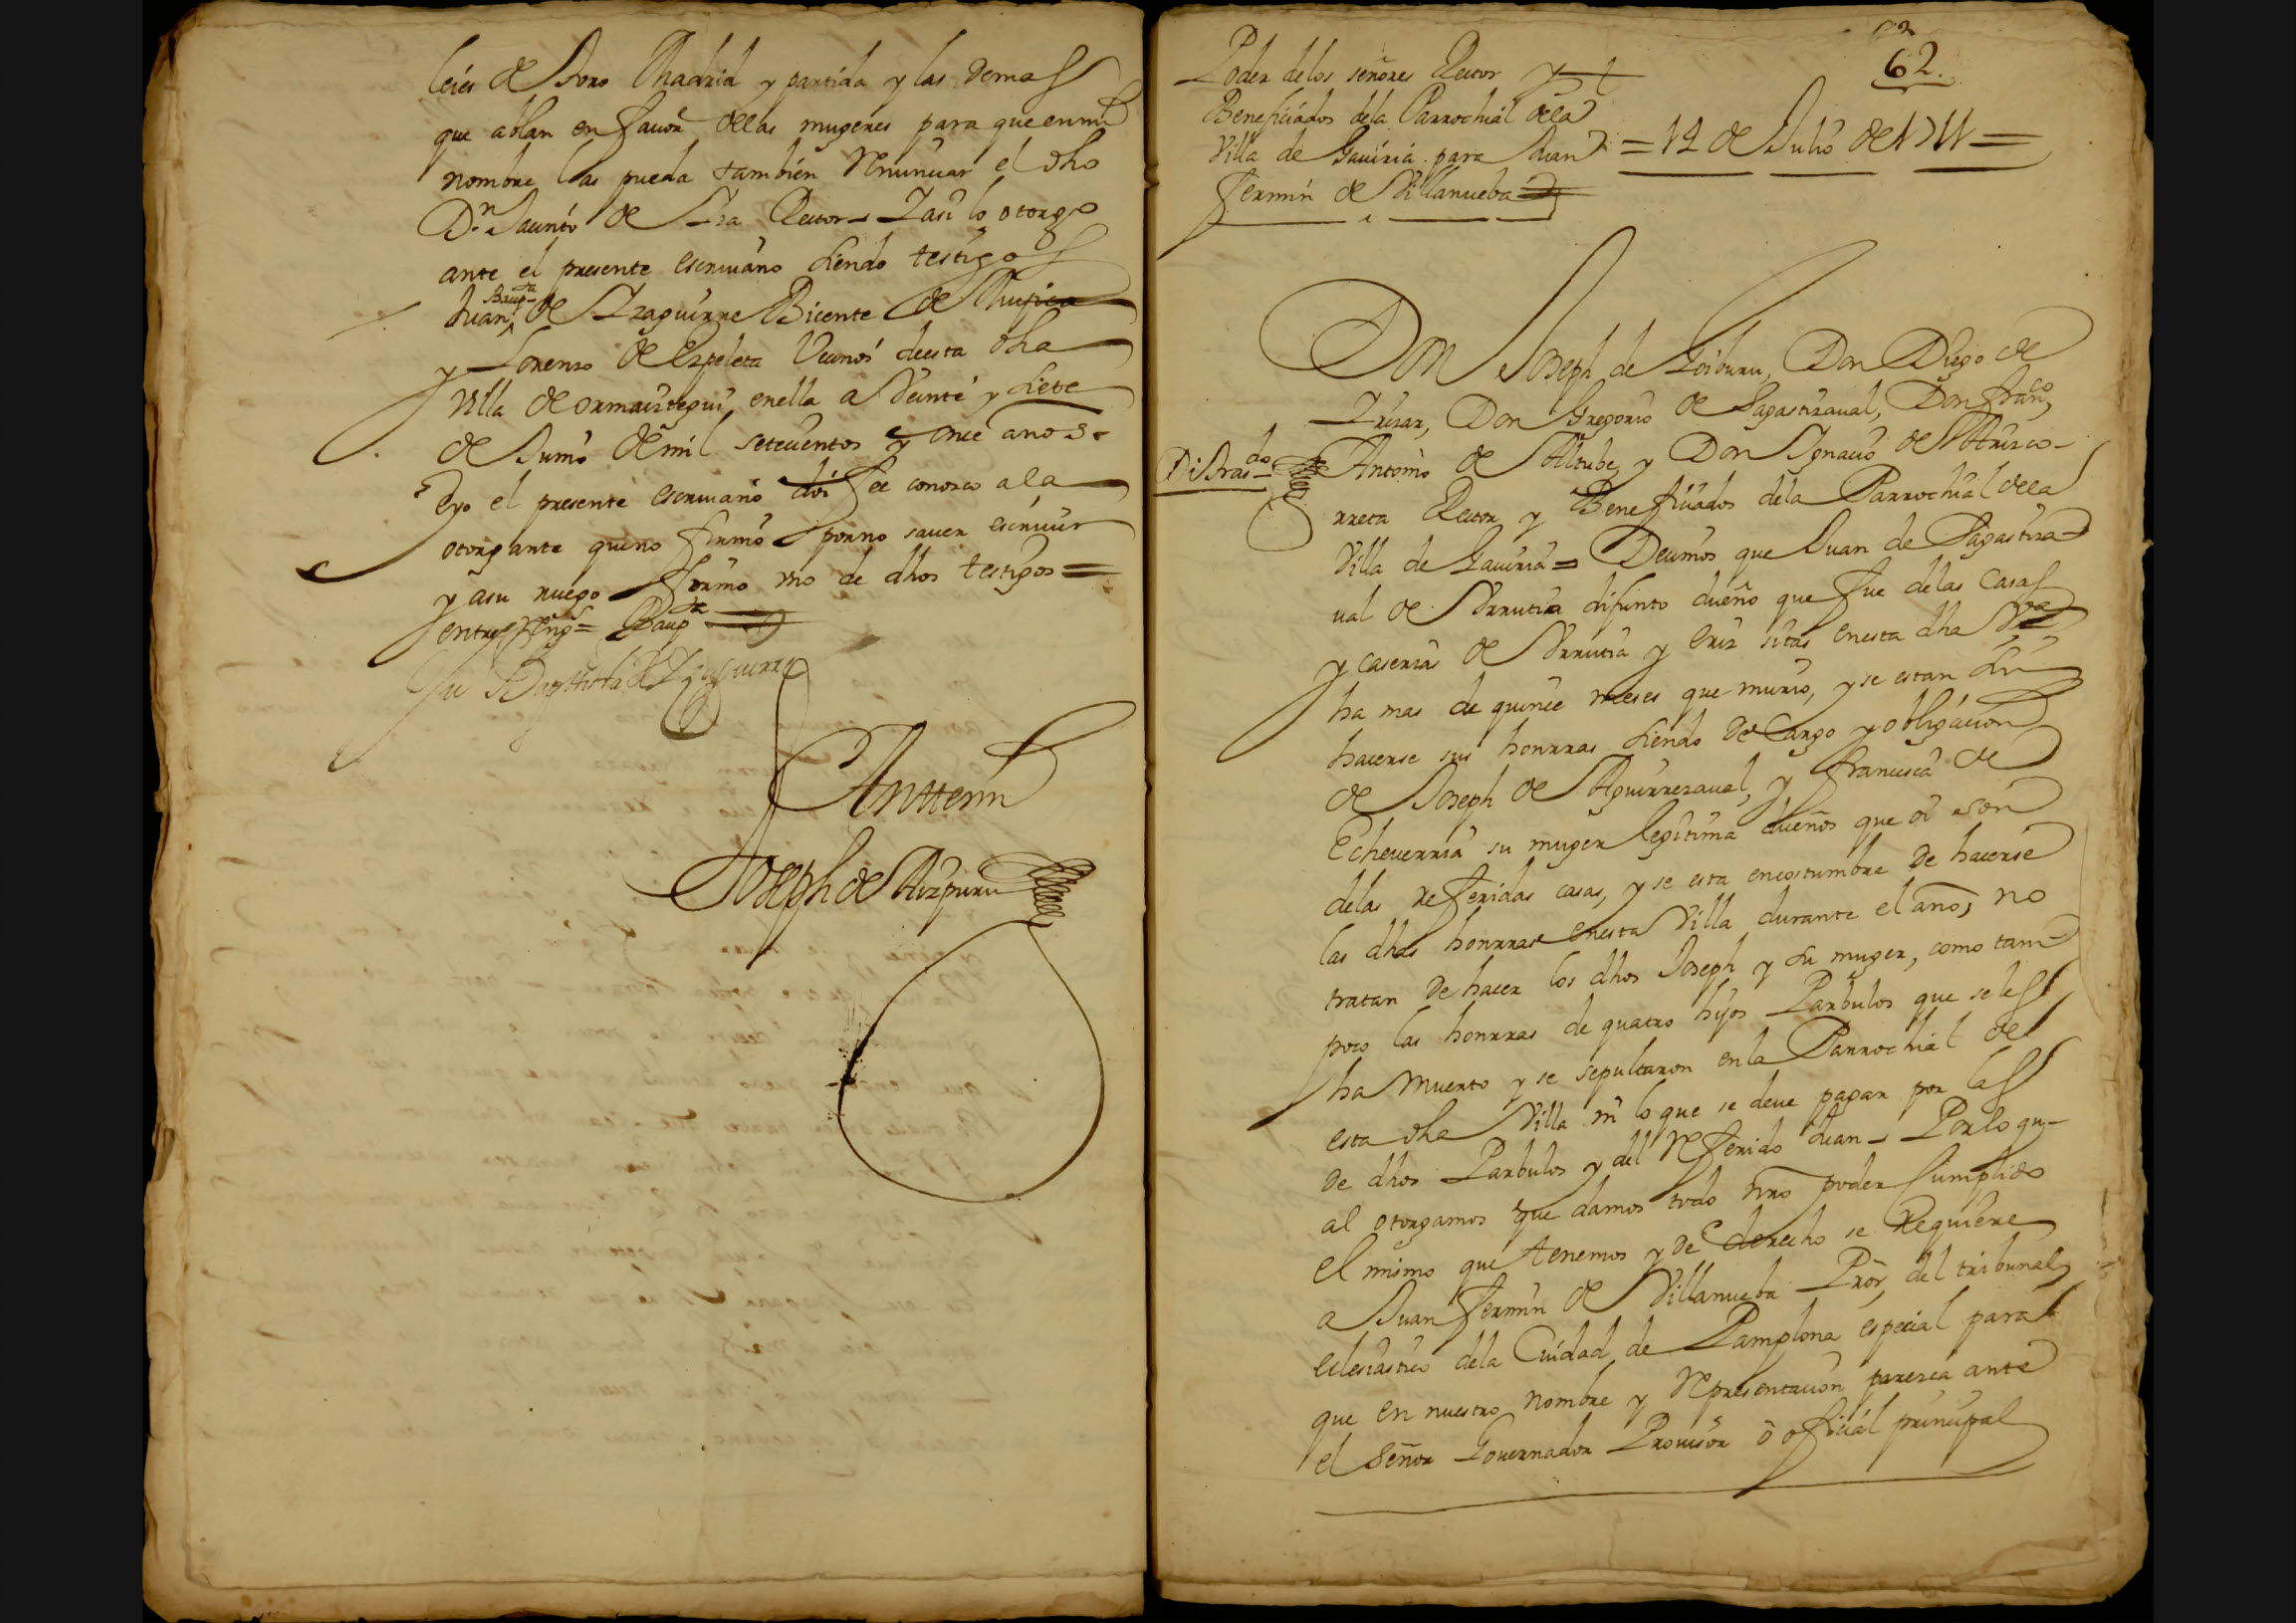 leies de Toro Madrid y partida y las demas
que ablan en fauor dellas mugeres para que en mi
nombre las pueda tambien Renunciar el dho
Dn. Jacinto de Rector - Y asi lo otorgo
ante el presente escriuano siendo testigos
Juan Baupta de Yzaguirre Bicente de Mujica
y Lorenzo de Ezpeleta Vecinos de esta dha
Villa de ormaiztegui enella a Veinte y siete
de Junio de mil setecientos y once anos
Eyo el presente escriuano doi fee conosco a la
otorgante que no firmo por no sauer escriuir
y asu ruego firmo vno de dhos testigos =
entre Rengs = Baupta
Ju Baptista de Yzaguirre
Antte mi
Joseph de Aizpuru
62.
Poder de los señores Rector y
Beneficiados dela Parrochial dela
Villa de Gauiria para Juan
fermin de Villanueba
= 12 de Julio de 1711 =
Don Joseph de Goiburu, Don Diego de
Yrizar, Don Gregorio de Sagastizaual, Don franco
Antonio de Altube, y Don Ygnacio de Aurreco-
rreta Rector y Beneficiados dela Parrochial della
Villa de Gauiria = Decimos que Juan de Sagastiza-
ual de Vrrutia difunto dueño que fue delas Casas
y caseria de Vrrutia y sitas enesta dha Va
ha mas de quince meses que murio, y se estan sin
hacerse sus honrras siendo de Cargo y obligacion
de Joseph de Aguirrezaual, y francisca de
Echeuerria su muger legitima dueños que oi son
delas referidas casas, y se esta encostumbre de hacerse
las dhas honrras enesta Villa durante el año, no
tratan de hacer los dhos Joseph y su muger, como tam-
poco las honrras de quatro hijos Parbulos que se les
ha muerto y se sepultaron en la Parrochial de
esta dha Villa ni lo que se deue pagar por las
de dhos Parbulos y del Referido Juan - Por lo qu-
al otorgamos que damos todo nro poder Cumplido
el mismo que tenemos y de derecho se Requiere
a Juan fermin de Villanueba Pror, del tribunal
eclesiastico dela Ciudad de Pamplona especial para
que en nuestro nombre y Representacion paresca ante
el señor Gouernador Prouisor o oficial principal